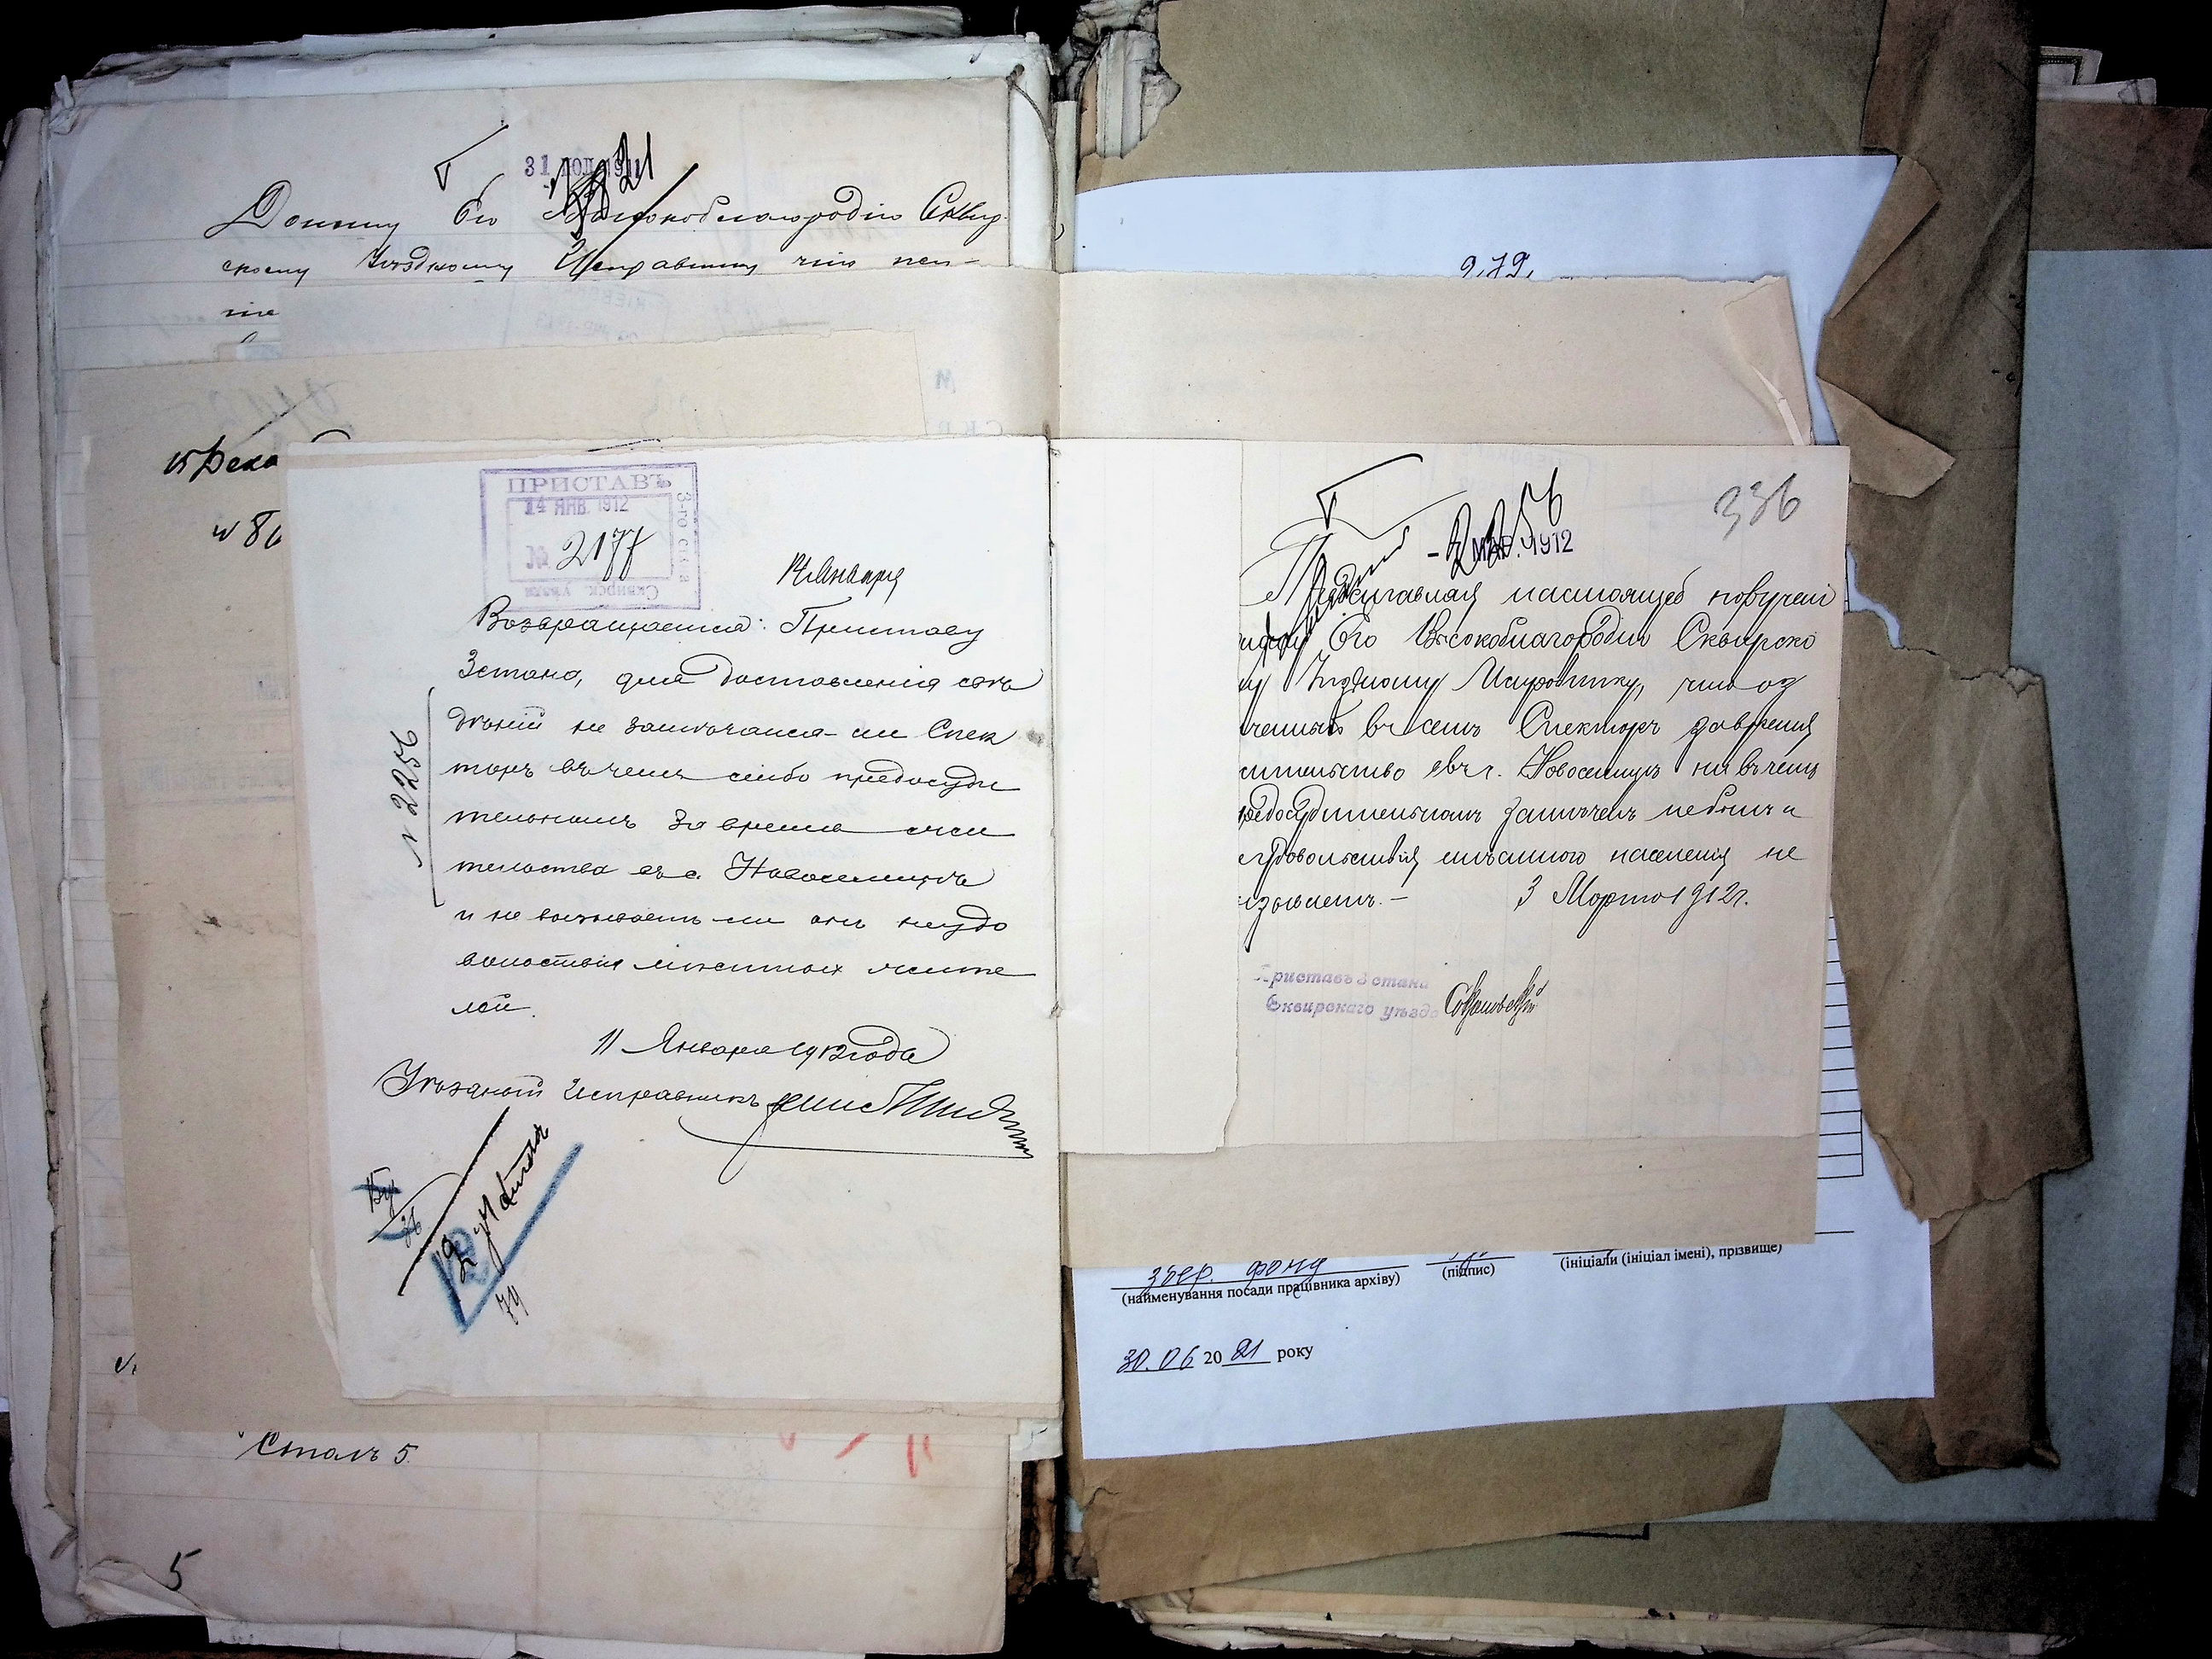 31 1911
Доношу Его Высокоблагородію Сквир-
скому Уѣздному Исправнику что
15 Дека
№ 86
ПРИСТАВЪ
14 ЯНВ. 1912
№ 2177
3-го стана
Сквирск. уѣзда
14 Января
Возвращается: Приставу
3 стана, для доставленія свѣ
дѣній не замѣчался-ли Спек
торъ въ чемъ либо предосуди
тельномъ за время жи
тельства въ с. Новоселицѣ
и не вызываетъ-ли онъ неудо
вольствія мѣстныхъ жите
лей.
11 Января 1912 года
Уѣздный Исправникъ
№ 2256
Столъ 5.
5
279
336
2256
- 3 МАР. 1912
Представляя настоящую
Его Высокоблагородію Сквирско
му Уѣздному Исправнику, что оз
ченный въ семъ Спекторъ за время
жительство въ с. Новоселицѣ ни въ чемъ
предосудительномъ замѣченъ не былъ и
неудовольствія мѣстного населенія не
вызываетъ. - 3 Марта 1912 г.
Приставъ 3 стана
Сквирскаго уѣзда
збер. фонд
(найменування посади працівника архіву)
(підпис)
(ініціали (ініціал імені), прізвище)
30.06 2021 року